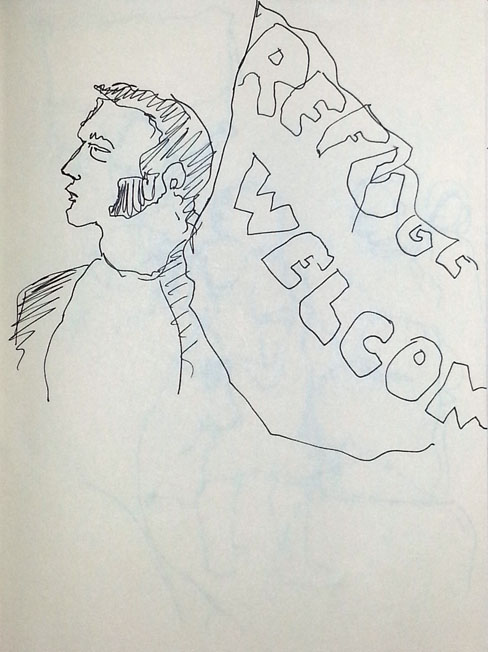 REFUGE
WELCOM